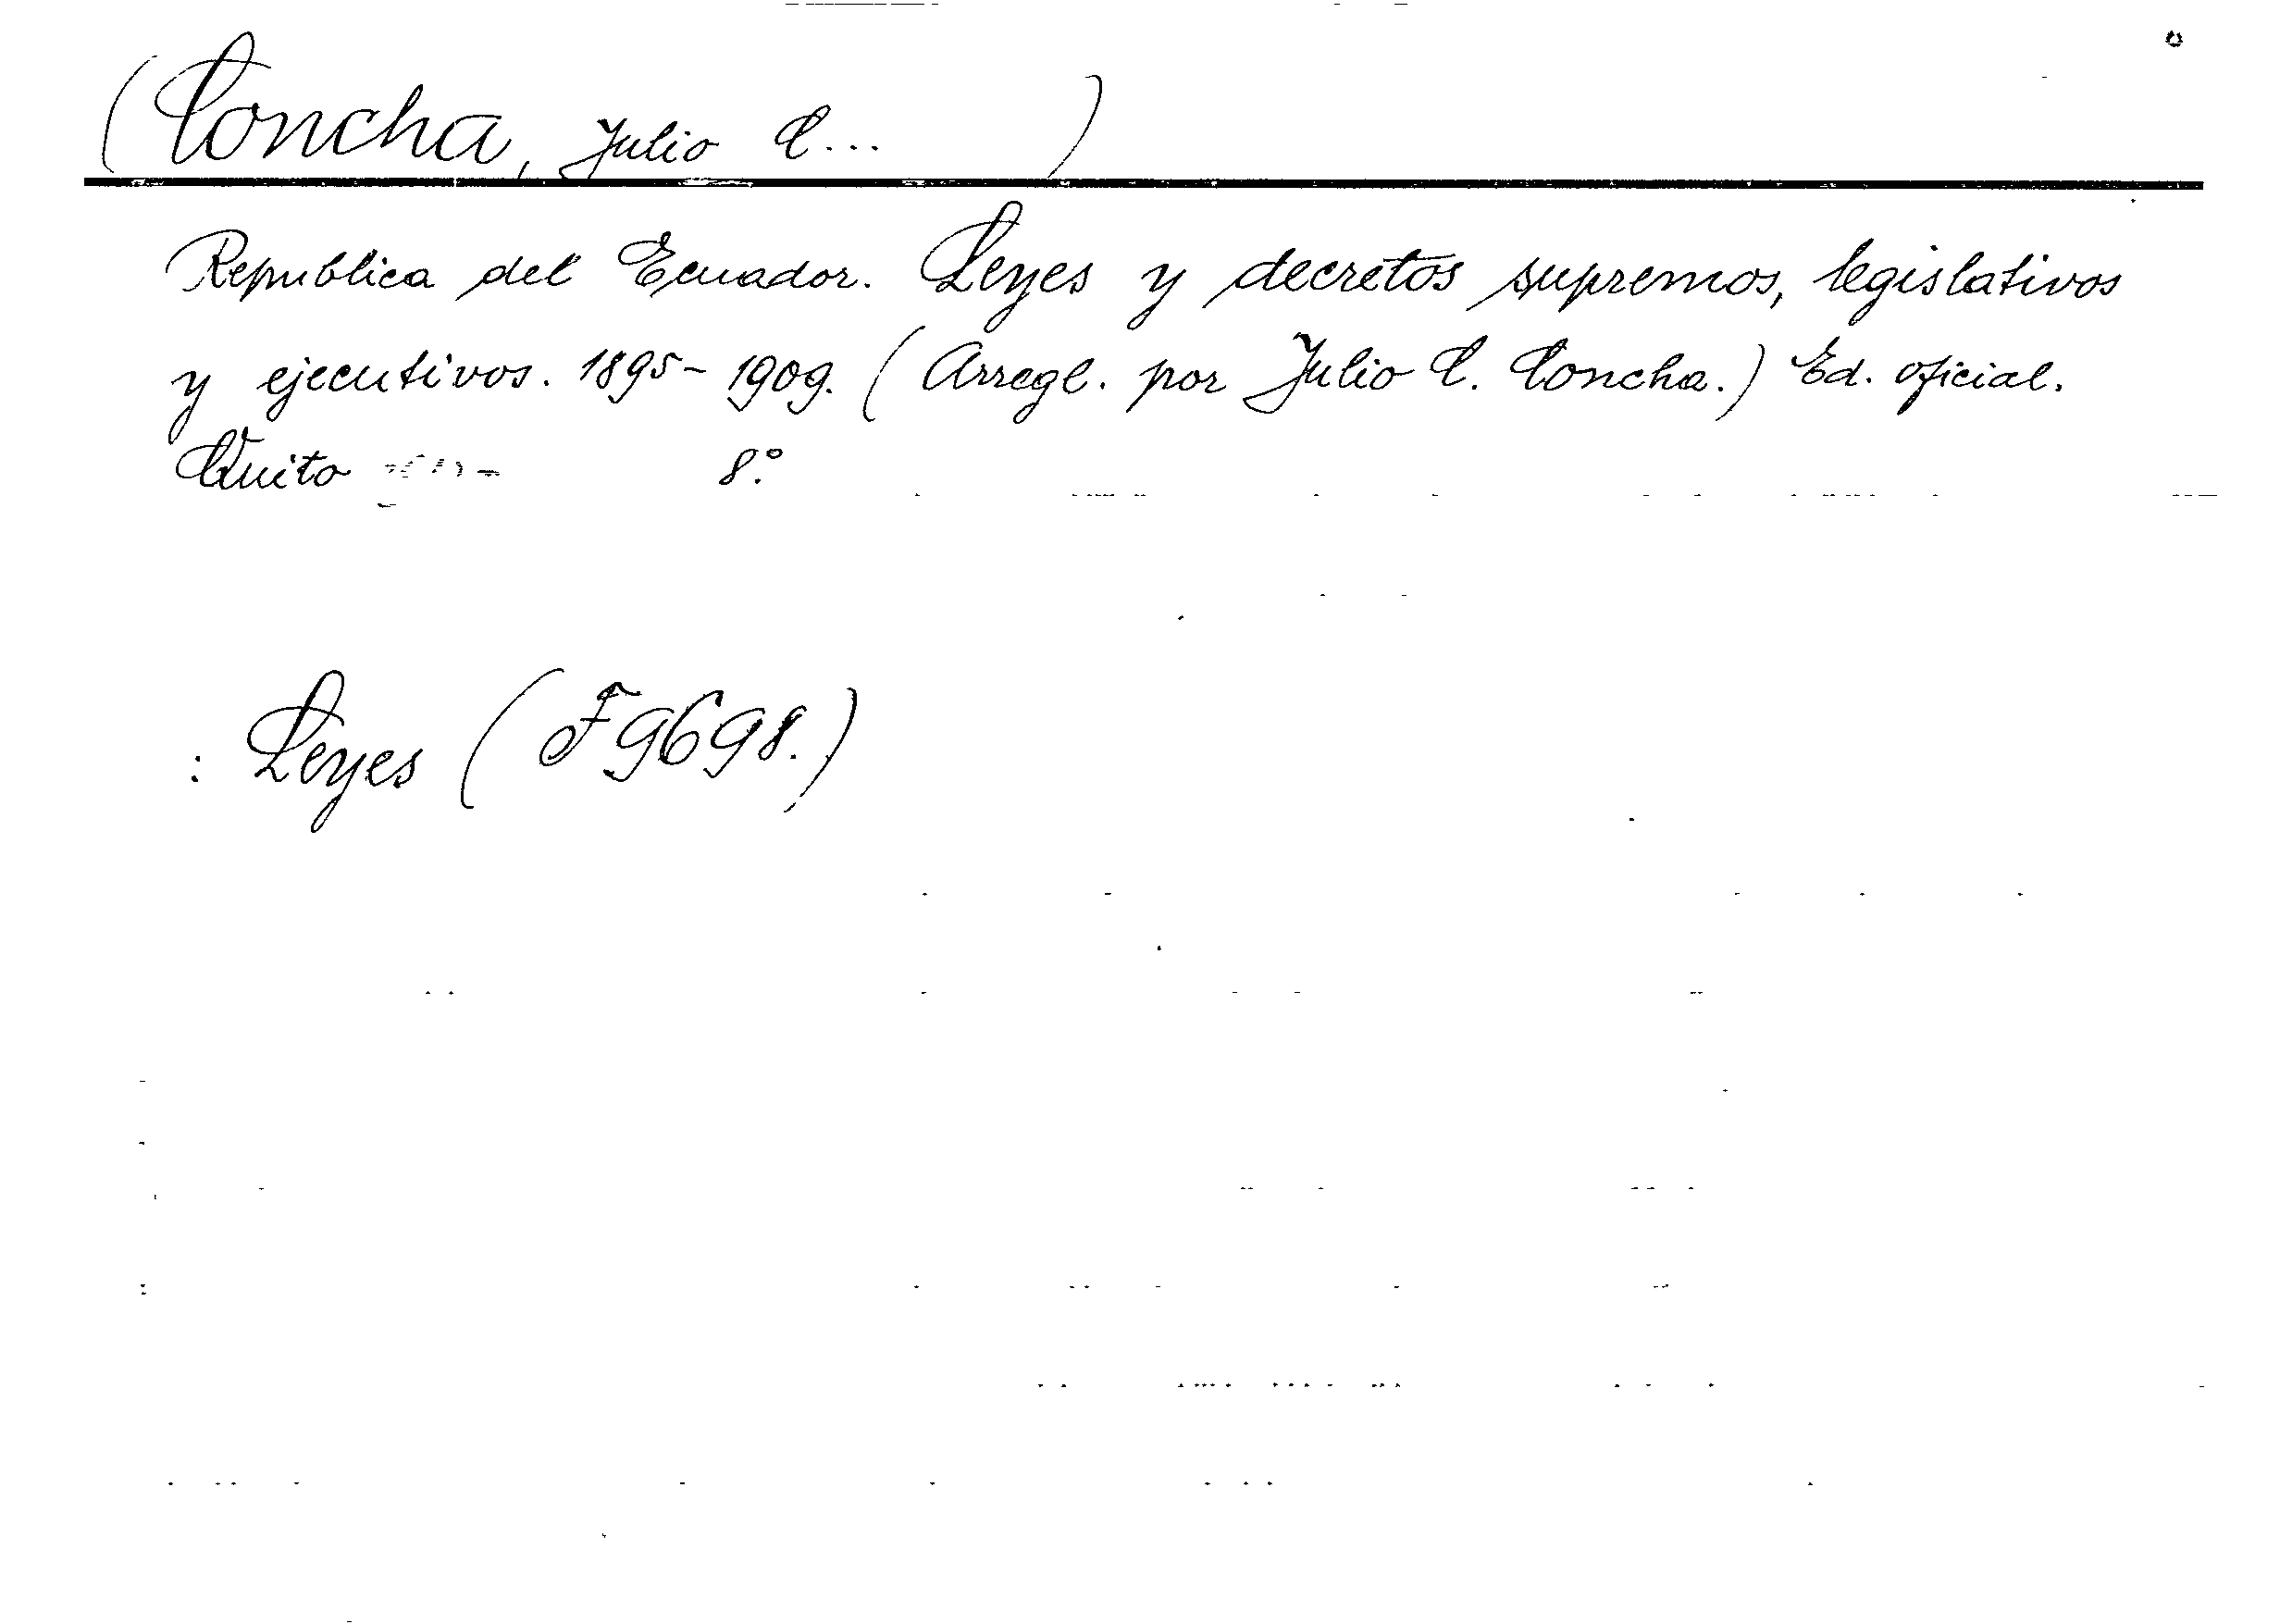 (Concha, Julio C... )
Republica del Ecuador. Leyes y decretos supremos, legislativos
y ejecutivos. 1895-1909. (Arregl. por Julio C. Concha.) Ed. oficial.
Quito 8°.
: Leyes (F9698.)